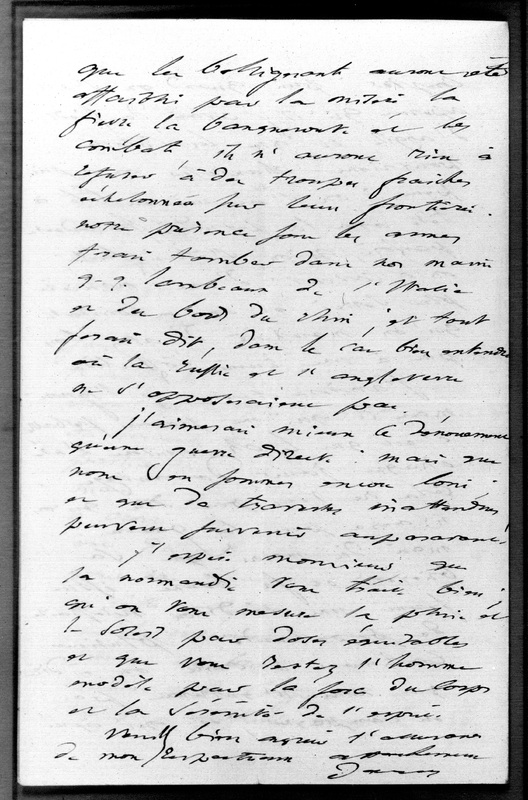 que les belligerants auront été
affaibli par la misère la
fièvre la banqueroute et les
combats, ils n'auront rien à
refuser à des troupes fraiches
échelonnées sur leur frontière.
notre présence sous les armes
ferait tomber dans nos mains
q. q. lambeaux de l'Italie
et du bord du rhin, et tout
serait dit, dans le cas bien entendu
où la Russie et l'angleterre
ne s'opposeraient pas.
j'aimerais mieux ce dénouement
qu'une guerre directe : mais que
nous en sommes encore loin ;
et que de traverses inattendues
peuvent survenir auparavant !
j'espère monsieur que
la normandie vous traite bien ;
qu'on vous mesure la pluie et
le soleil par doses équitables
et que vous restez l'homme
modèle par la force du corps
et la sérénité de l'esprit.
Veuillez bien agréer l'assurance
de mon respectueux attachement